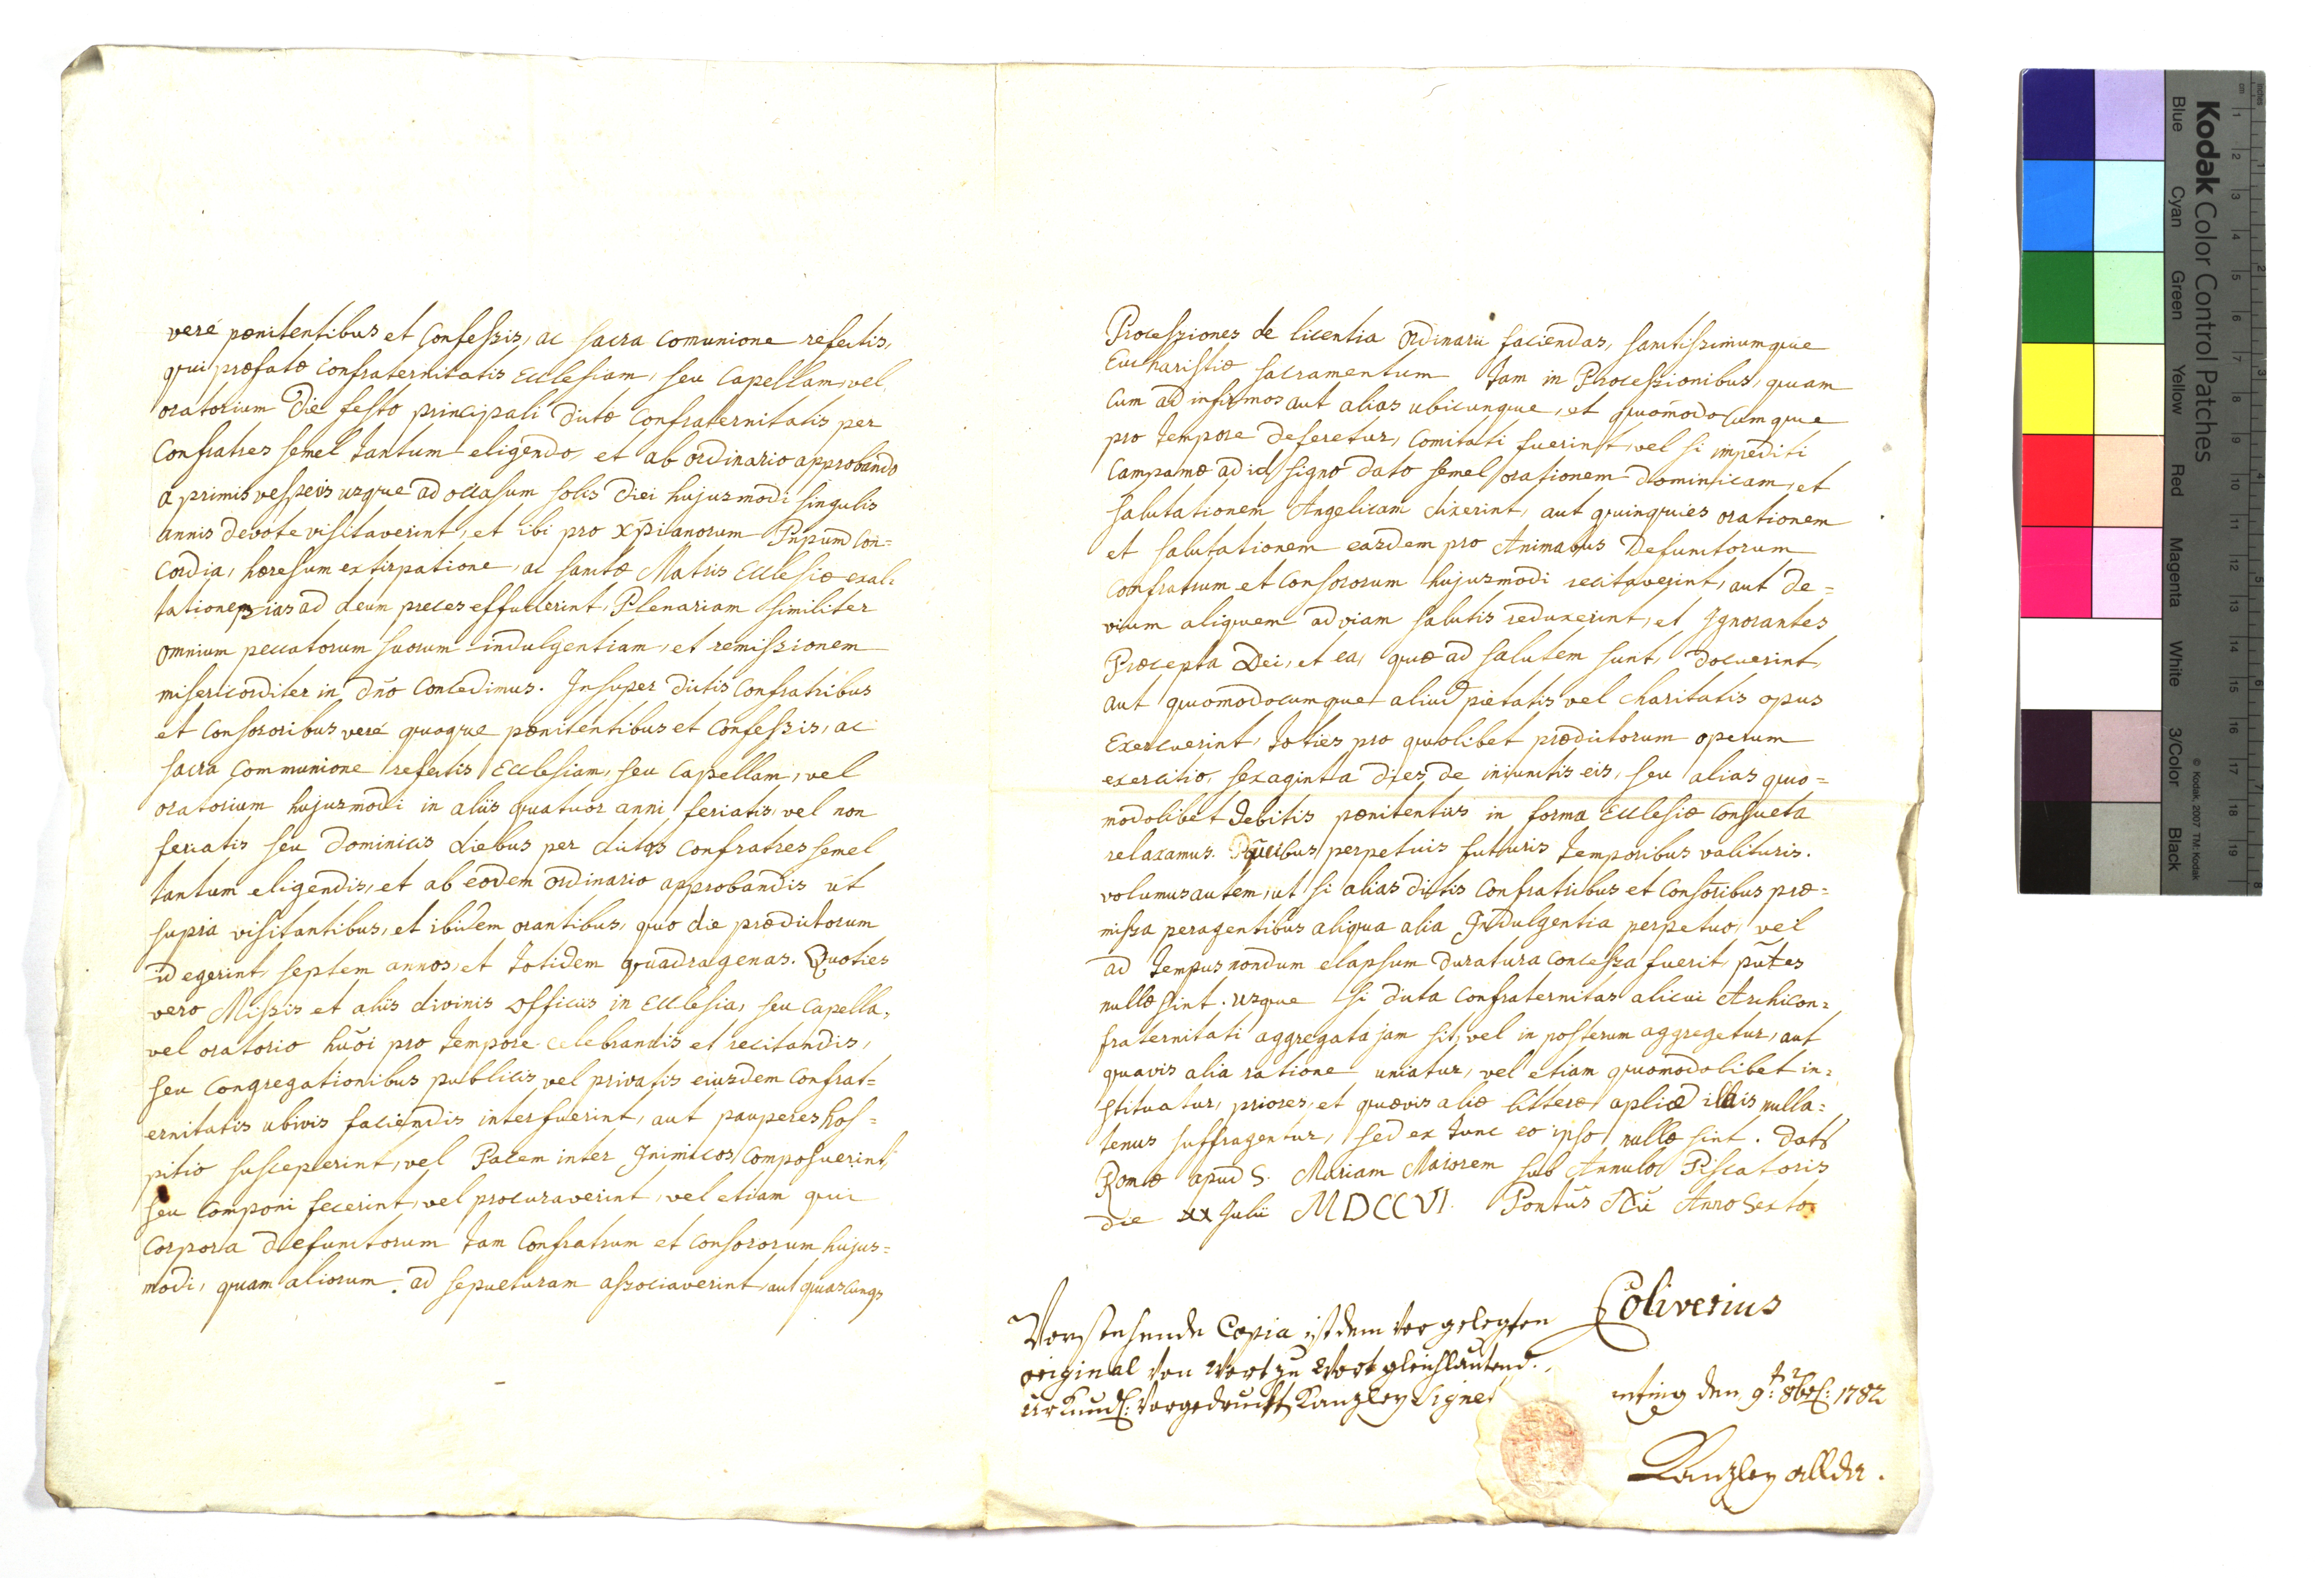 veré pœnitentibus et Confessis, ac sacra comunione refectis,
qui præfatæ Confraternitatis Ecclesiam, seu Capellam, vel
oratorium Die festo principali dictæ Confraternitatis per
Confratres semel tantum eligendo, et ab ordinario approbando
a primis vesperis usque ad occasum solis Diei hujusmodi singulis
annis devote visitaverint, et ibi pro xp̄ianorum Pnpum Con=
cordia, hæresum extirpatione, ac sanctæ Matris Ecclesiæ exal=
tatione pias ad deum preces effuderint, Plenariam similiter
omnium peccatorum suorum indulgentiam, et remissionem
misericorditer in Dn̄o Concedimus. Insuper dictis Confratribus
et Consororibus veré quoque pœnitentibus et Confessis, ac
sacra Communione refectis Ecclesiam, seu Capellam, vel
oratorium hujusmodi in aliis quatuor anni feriatis, vel non
feriatis seu Dominicis diebus per dictos Confratres semel
tantum eligendis, et ab eodem ordinario approbandis ut
supra visitantibus, et ibidem orantibus, quo die prædictorum
id egerint, septem annos, et totidem quadragenas. Quoties
vero Missis et aliis divinis officiis in Ecclesia, seu Capella,
vel oratorio hu͞oi pro tempore celebrandis et recitandis,
seu Congregationibus publicis, vel privatis eiusdem Confrat=
ernitatis ubivis faciendis interfuerint, aut pauperes hos=
pitio susceperint, vel Pacem inter Inimicos Composuerint,
seu Componi fecerint, vel procuraverint, vel etiam qui
Corpora defunctorum tam Confratrum et Consororum hujus=
modi, quam aliorum. ad sepulturam associaverint, aut quascunqs
Processiones de licentia ordinarii faciendas, sanctissimumque
Eucharistiæ sacramentum tam in Processionibus, quam
Cum ad infirmos aut alias ubicunque, et quomodocumque
pro tempore deferetur, Comitati fuerint, vel si impediti
Campanæ ad id signo dato semel orationem dominicam, et
salutationem Angelicam dixerint, aut quinquies orationem
et salutationem easdem pro Animabus Defunctorum
Confratrum et Consororum hujusmodi recitaverint, aut de=
vium aliquem ad viam salutis reduxerint, et Ignorantes
Præcepta Dei, et ea, quæ ad salutem sunt, docuerint,
aut quomodocumque aliud pietatis vel charitatis opus
Exercuerint, toties pro quolibet prædictorum operum
exercitio, sexaginta dies de iniunctis eis, seu alias quo=
modolibet debitis pœnitentiis in forma Ecclesiæ Consueta
relaxamus. perpetuis futuris temporibus valituris.
volumus autem, ut si alias dictis Confratribus et Consoribus præ=
missa peragentibus aliqua alia Indulgentia perpetuo, vel
ad tempus nondum elapsum duratura Concessa fuerit, pn̄tes
nullæ sint. usque si dicta Confraternitas alicui Archicon=
fraternitati aggregata jam sit, vel in posterum aggregetur, aut
quavis alia ratione uniatur, vel etiam quomodolibet in=
stituatur, priores, et quævis aliæ litteræ apliæ illis nulla=
tenus suffragentur, sed ex tunc eo ipso nullæ sint. Dat͞
Romæ apud S. Mariam Maiorem sub Annulo Piscatoris
die xx Julii MDCCVI. Pontūs Nr̄i Anno sexto.
Coliverius
Vorstehende Copia ist dem vor gelegten
original von wort zu wort gleichlautend.
urkundl: vorgedruckt Kanzley Signet
den 9t: 8br: 1782
Kanzley allda.
Kodak Color Control Patches
Blue Cyan Green Yellow Red Magenta White 3/Color Black
© Kodak, 2007 TM: Kodak